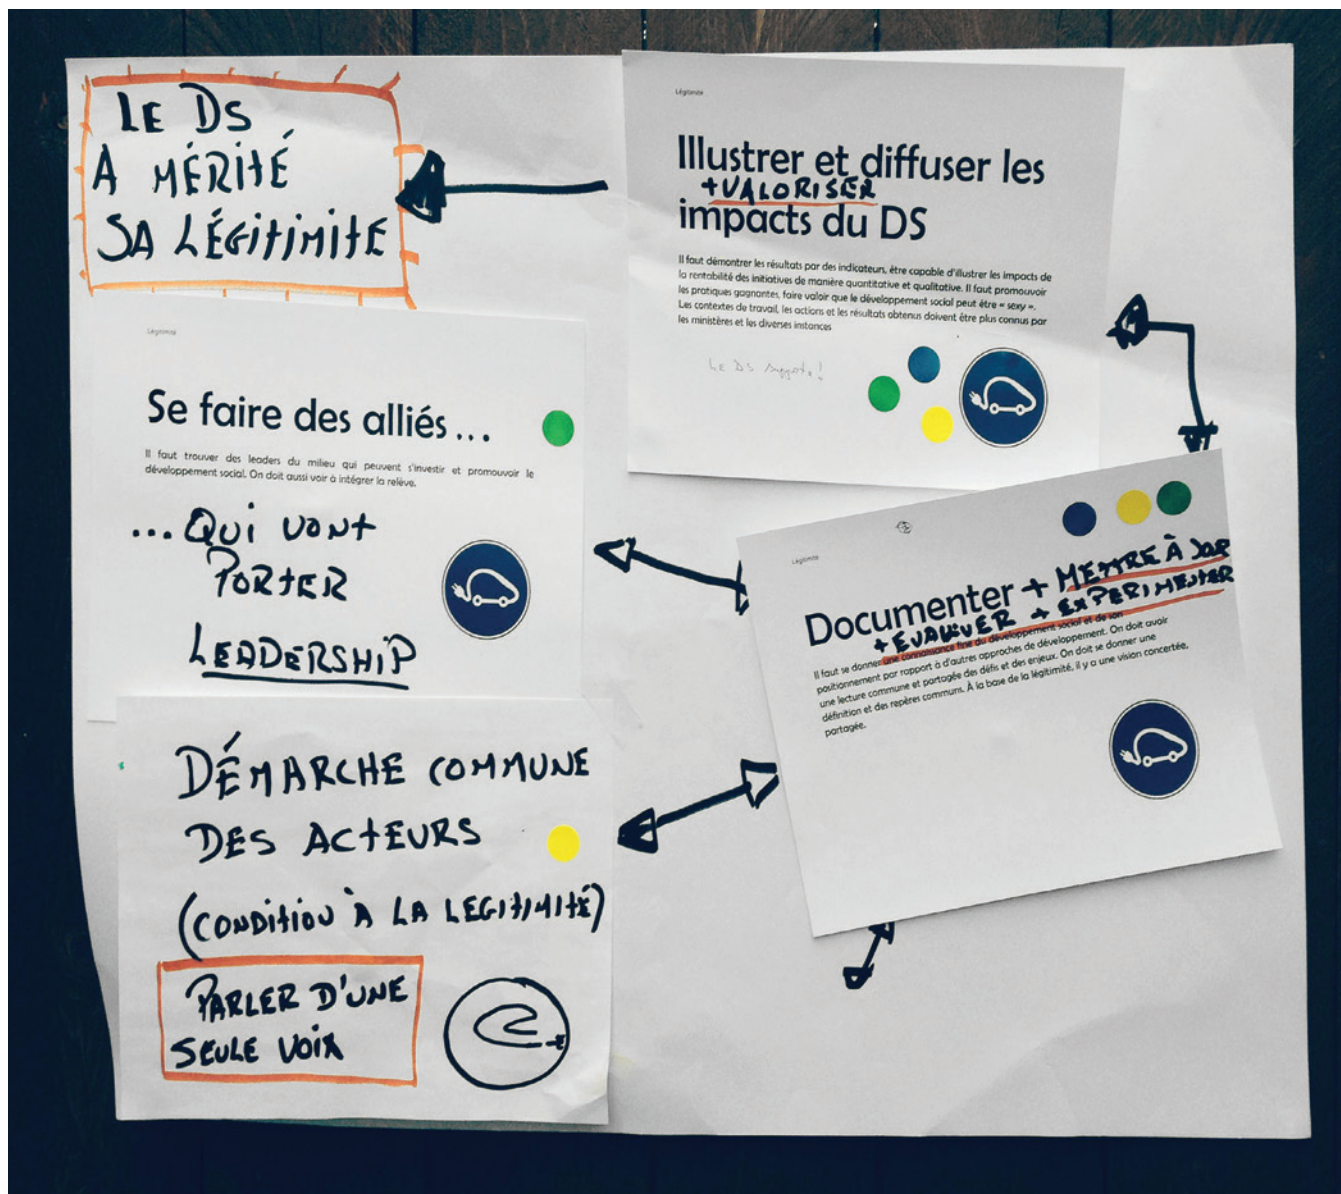 LE DS
A MÉRITÉ
SA LÉGITIMITÉ
Légitimité
Illustrer et diffuser les
+ VALORISER
impacts du DS
Il faut démontrer les résultats par des indicateurs, être capable d'illustrer les impacts de
la rentabilité des initiatives de manière quantitative et qualitative. Il faut promouvoir
les pratiques gagnantes, faire valoir que le développement social peut être « sexy ».
Les contextes de travail, les actions et les résultats obtenus doivent être plus connus par
les ministères et les diverses instances
LE DS
Légitimité
Se faire des alliés ...
Il faut trouver des leaders du milieu qui peuvent s'investir et promouvoir le
développement social. On doit aussi voir à intégrer la relève.
... QUI VONT
PORTER
LEADERSHIP
Légitimité
Documenter + METTRE À JOUR
+ EVALUER + EXPERIMENTER
Il faut se donner une connaissance fine du développement social et de son
positionnement par rapport à d'autres approches de développement. On doit avoir
une lecture commune et partagée des défis et des enjeux. On doit se donner une
définition et des repères communs. À la base de la légitimité, il y a une vision concertée,
partagée.
DÉMARCHE COMMUNE
DES ACTEURS
(CONDITION À LA LEGITIMITÉ)
PARLER D'UNE
SEULE VOIX